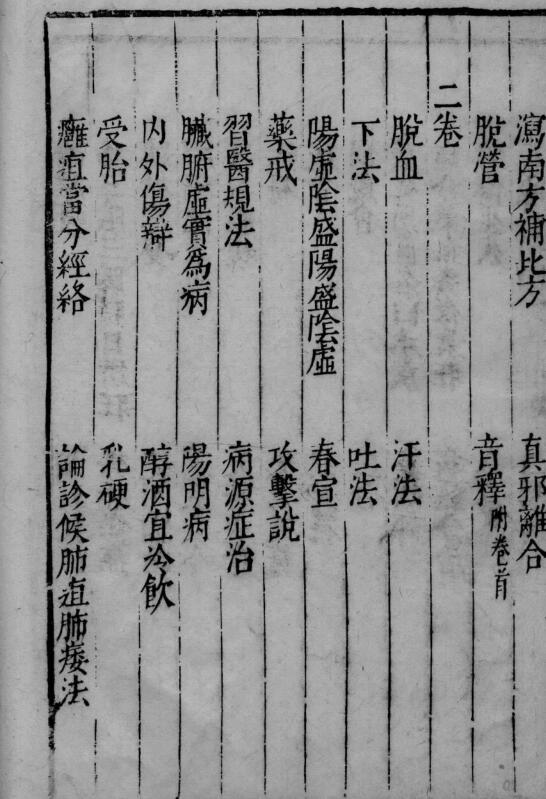 瀉南方補北方　真邪離合
脫營　音釋附卷首
二卷
脫血　汗法
下法　吐法
陽虛陰盛陽盛陰虛　春宣
藥戒　攻擊說
習醫規法　病源症治
臟腑虛實爲病　陽明病
內外傷辯　醇酒宜冷飲
受胎　乳硬
癰疽當分經絡　論診候肺疽肺痿法